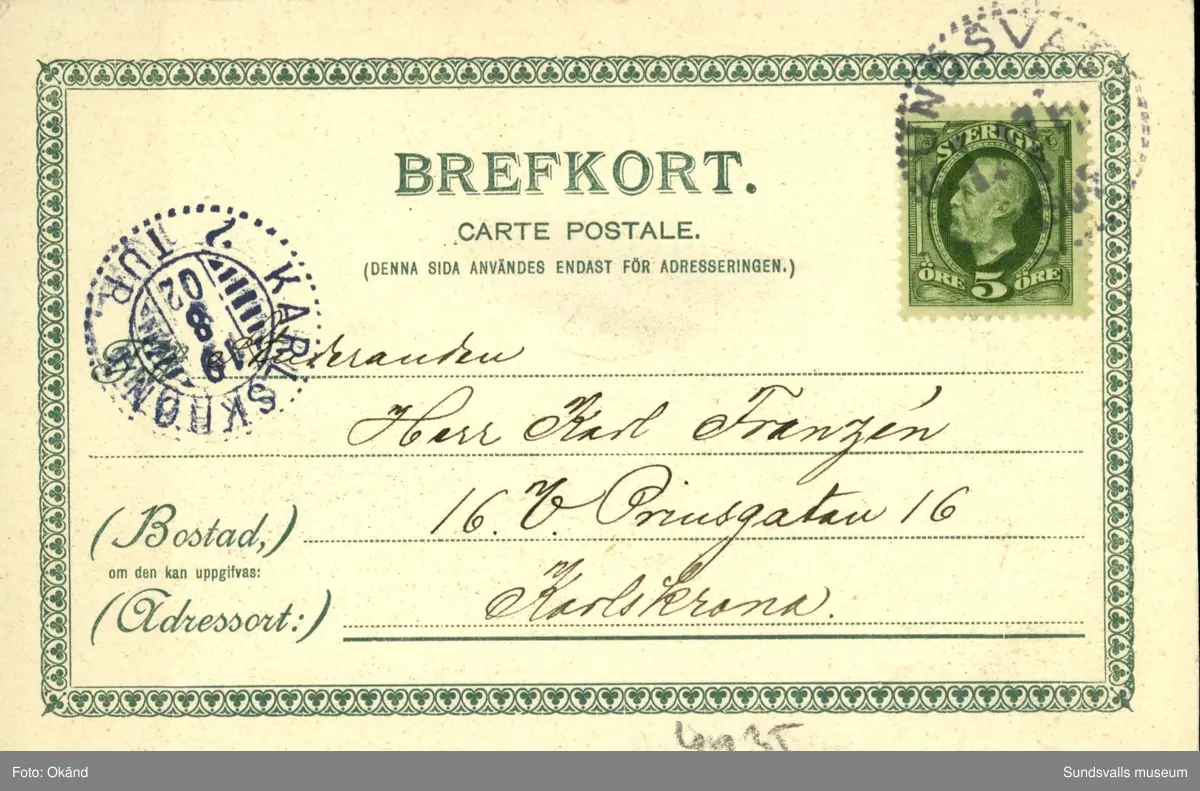 BREFKORT.
CARTE POSTALE.
(DENNA SIDA ANVÄNDES ENDAST FÖR ADRESSERINGEN.)
SVERIGE
ÖRE 5 ÖRE
2. TUR.
KARLSKRONA
Studeranden
Herr Karl Franzén
16. V. Prinsgatan 16
(Bostad,)
om den kan uppgifvas:
(Adressort:)
Karlskrona.
Foto: Okänd
Sundsvalls museum